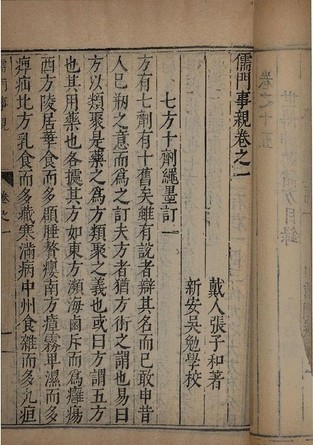 儒門事親卷之一
戴人張子和著
新安吳勉學校
七方十劑繩墨訂一
方有七劑有十舊矣雖有說者辯其名而已敢申昔
人已𣃁之意而為之訂夫方者猶方術之謂也易曰
方以類聚是藥之為方類聚之義也或曰方謂五方
也其用藥也各據其方如東方瀕海鹵斥而為癰瘍
西方陵居華食而多頤腫贅癭南方瘴霧卑濕而多
痺疝北方乳食而多藏寒滿病中州食雜而多九疸
卷之十五
目錄
儒門事親
卷之一
一